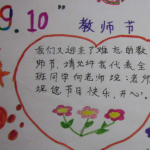 9.10"
教师节
我们又迎来了难忘的教
师节,请允许我代表全
班同学向老师说:老师
您节日快乐,开心。